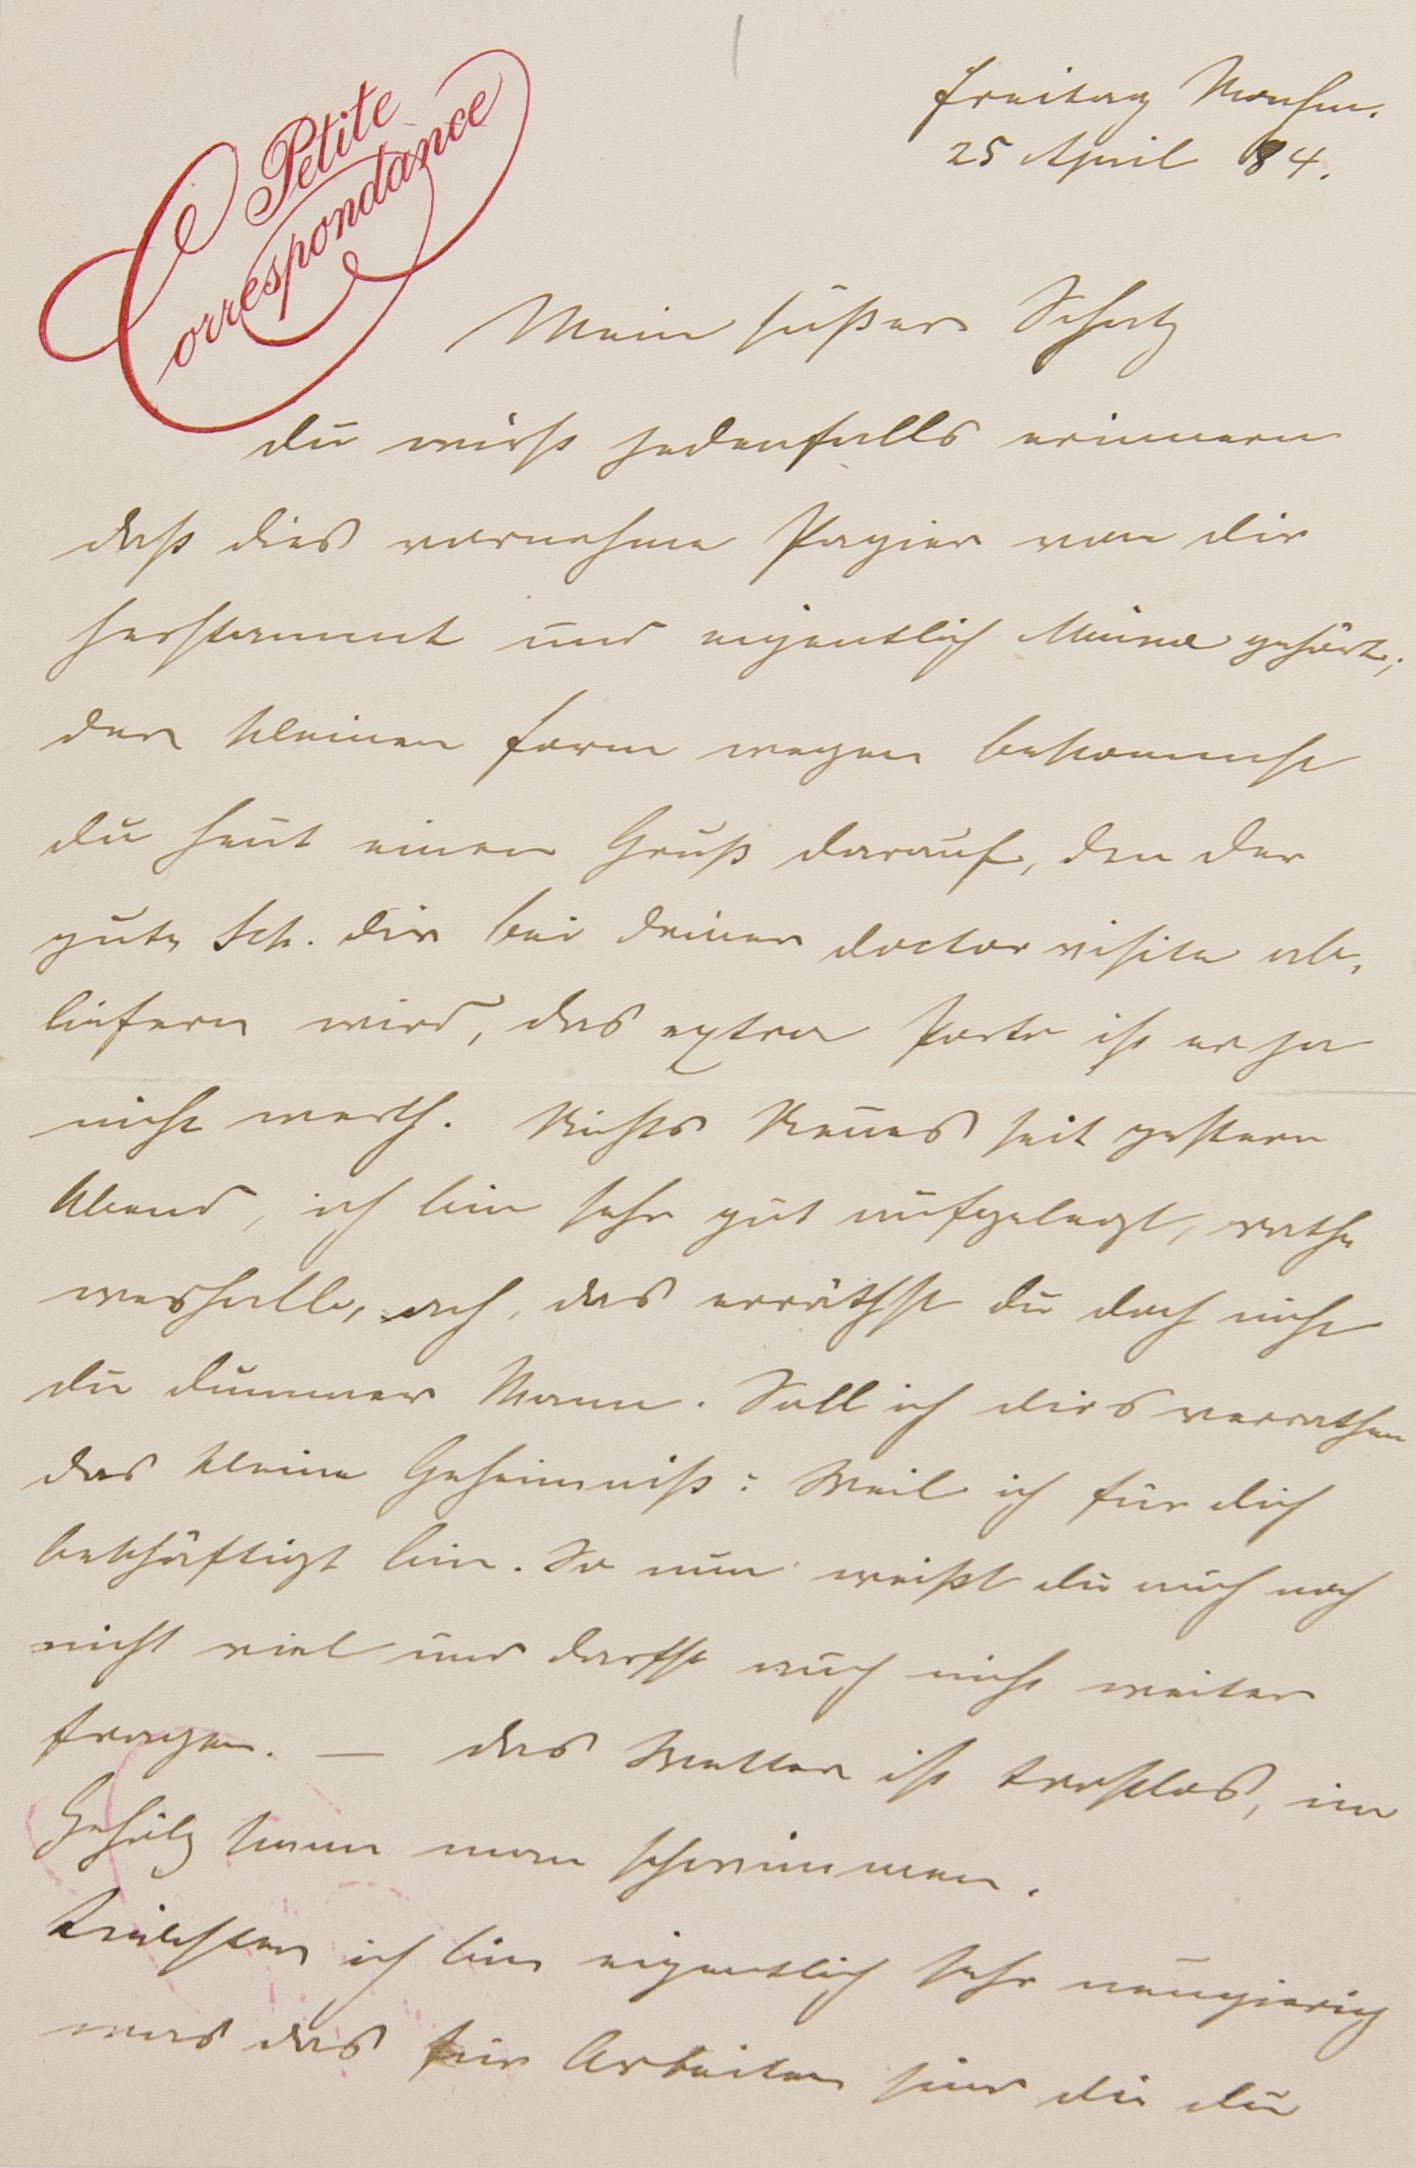 Petite
Correspondance
Freitag
25 April 84.
Mein süßer Schatz
Du wirst jedenfalls erinnern
daß dies vornehme Papier von Dir
herstammt und eigentlich Minna gehört;
der kleinen Form wegen bekommst
Du heut einen Gruß darauf, den der
gute Sch. Dir bei Deiner Doctorvisite ab-
liefern wird, das extra Porto ist er ja
nicht werth. Nichts Neues seit gestern
Abend, ich bin sehr gut aufgelegt, rathe
weshalb, ach, das erräthst Du doch nicht
Du dummer Mann. Soll ich Dirs verrathen
das kleine Geheimniß: Weil ich für Dich
beschäftigt bin. So nun weißt Du auch noch
nicht viel und darfst auch nicht weiter
fragen. — Das Wetter ist trostlos, im
Gehölz kann man schwimmen.
Liebster ich bin eigentlich sehr neugierig
was das für Arbeiten sind die Du